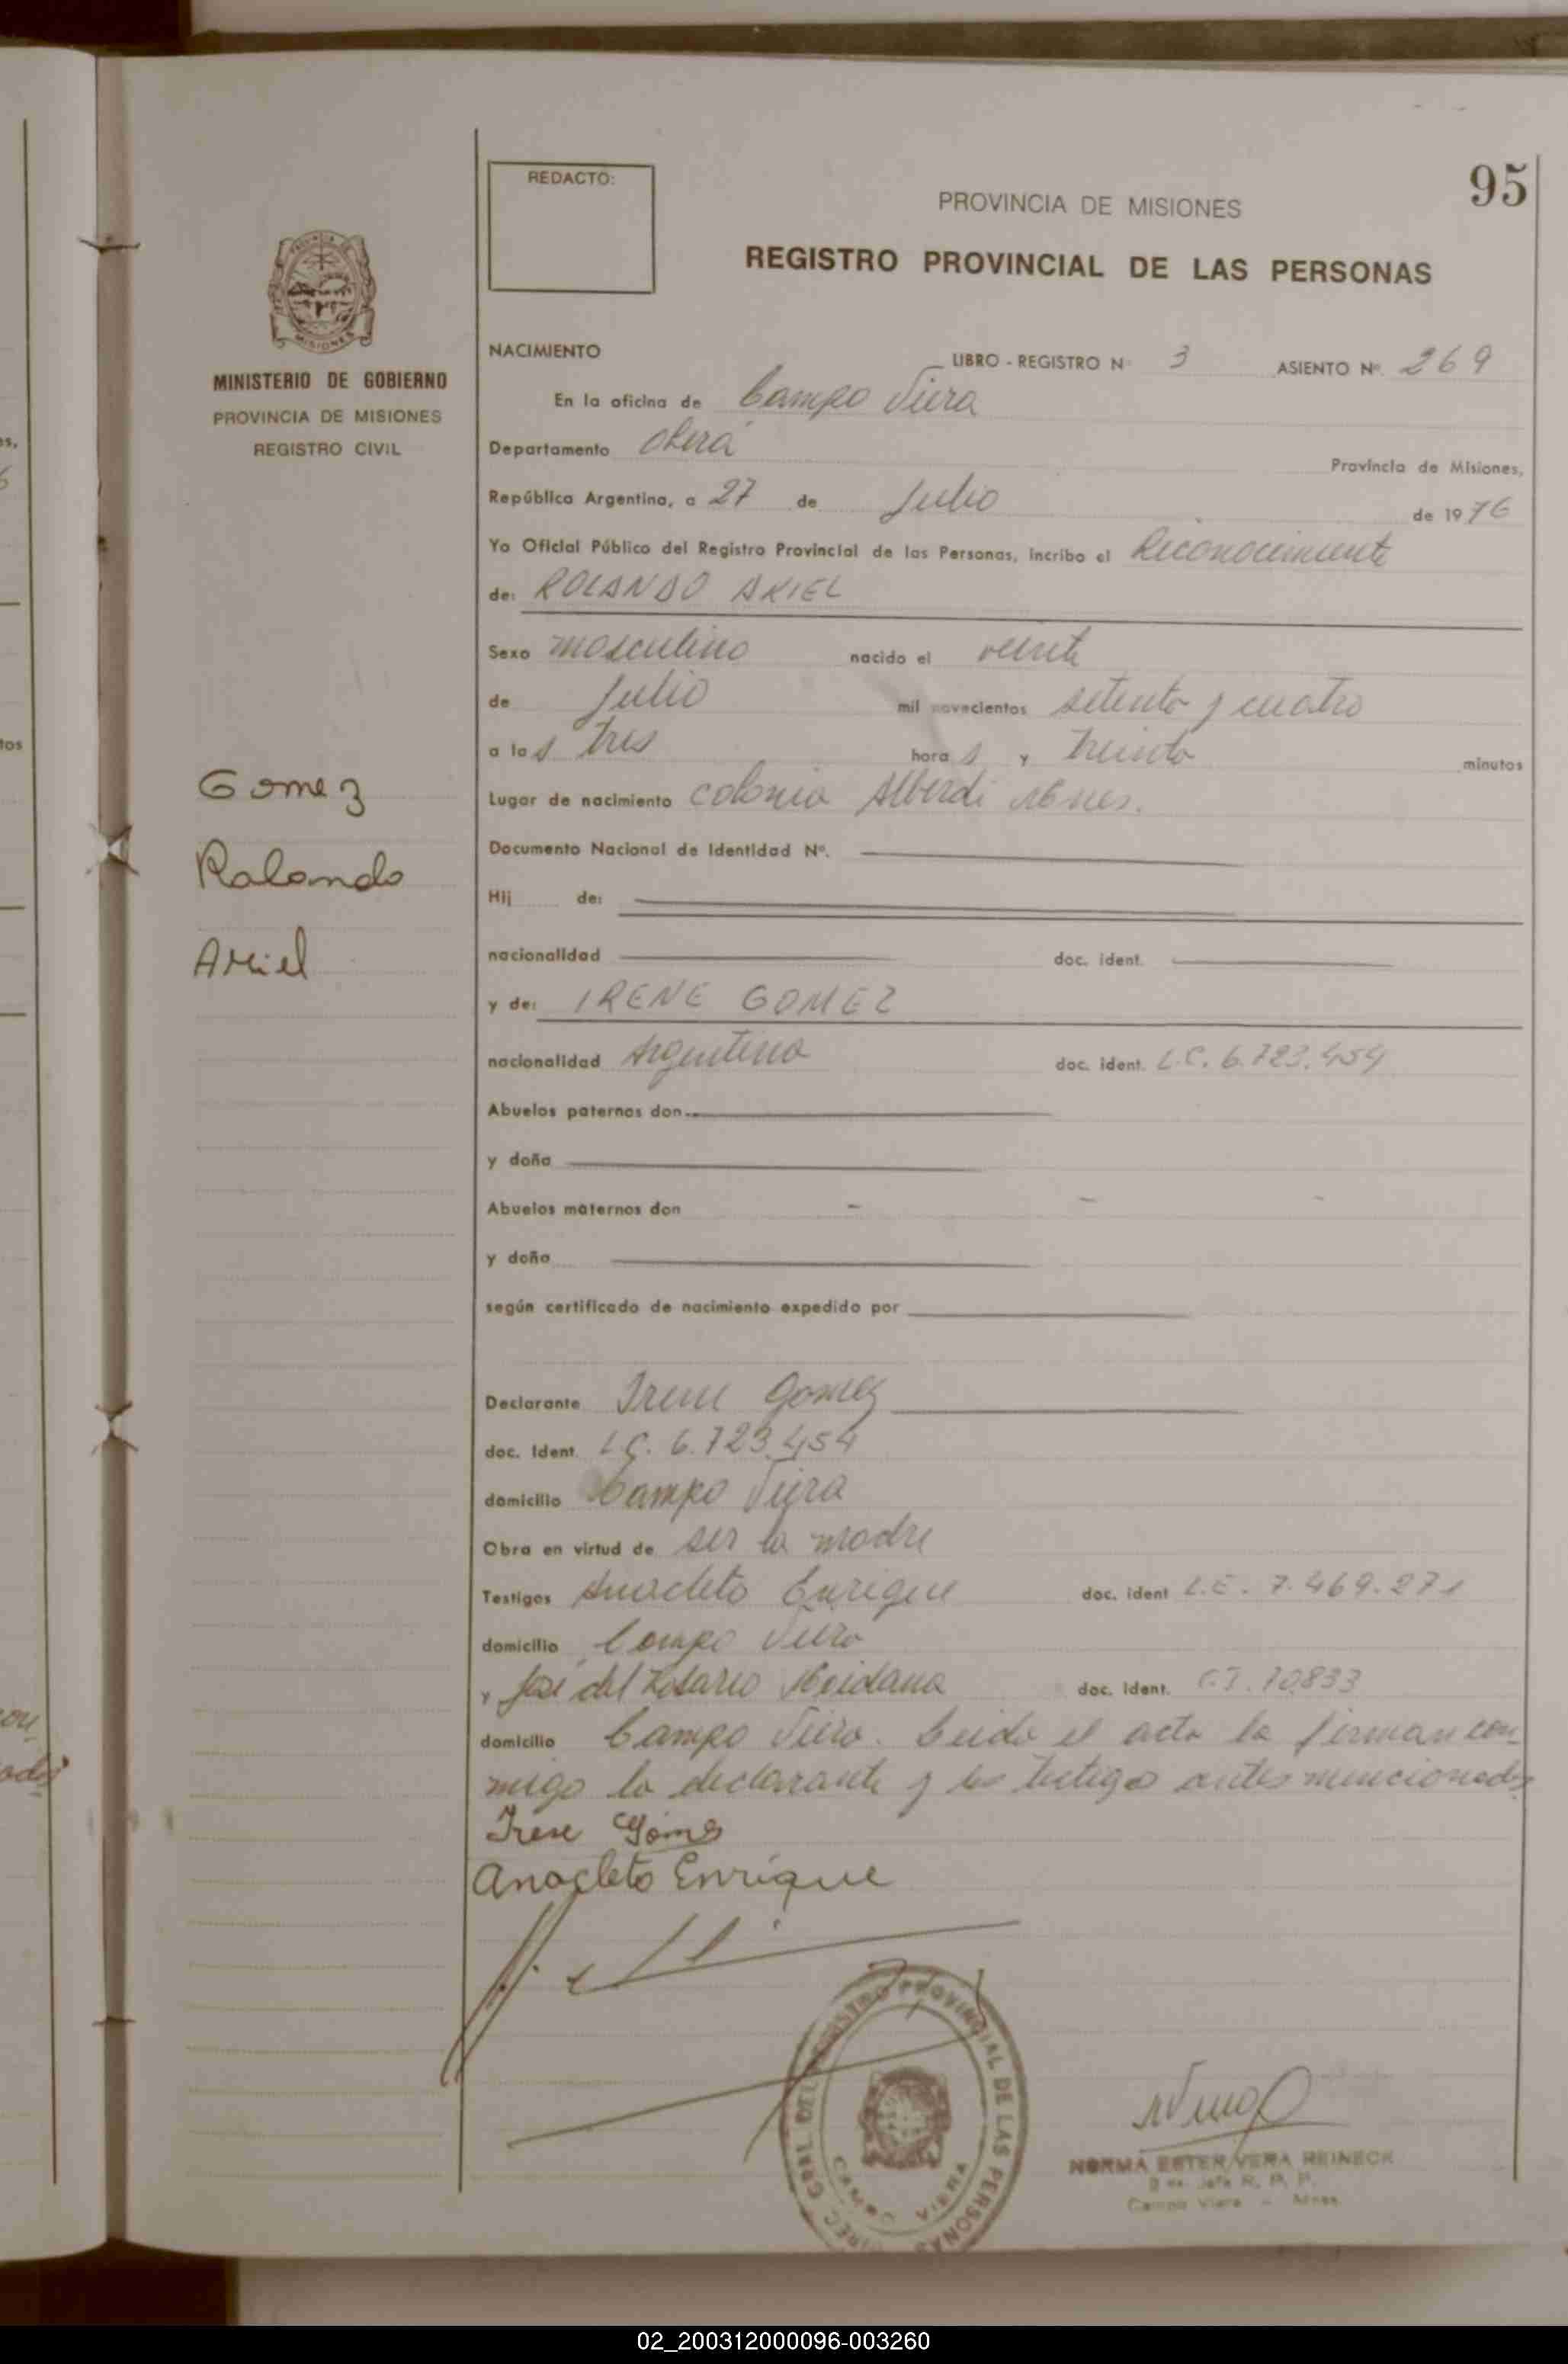 95
REDACTO:
PROVINCIA DE MISIONES
REGISTRO PROVINCIAL DE LAS PERSONAS
MISIONES
MINISTERIO DE GOBIERNO
PROVINCIA DE MISIONES
REGISTRO CIVIL
Gomez
Rolando
Ariel
NACIMIENTO LIBRO - REGISTRO Nº 3 ASIENTO Nº. 269
En la oficina de Campo Viera
Departamento Oberá Provincia de Misiones,
República Argentina, a 27 de Julio de 1976
Yo Oficial Público del Registro Provincial de las Personas, incribo el Reconocimiento
de: ROLANDO ARIEL
Sexo masculino nacido el veinte
de Julio mil novecientos setenta y cuatro
a las tres horas y treinta minutos
Lugar de nacimiento colonia Alberdi Mnes.
Documento Nacional de Identidad Nº.
Hij de:
nacionalidad doc. ident.
y de: IRENE GOMEZ
nacionalidad Argentina doc. ident. L.C. 6.723.454
Abuelos paternos don
y doña
Abuelos maternos don - - -
y doña
según certificado de nacimiento expedido por
Declarante Irene Gomez
doc. Ident. L.C. 6.723.454
domicilio Campo Viera
Obra en virtud de ser la madre
Testigos Anacleto Enrique doc. ident L.E. 7.469.271
domicilio Campo Viera
y José del Rosario Maidana doc. Ident. C.I. 70833
domicilio Campo Viera. Leída el acta la firman con-
migo la declarante y los testigos antes mencionados
Irene Gomes
Anacleto Enrique
DIREC. GRAL. DEL REGISTRO PROVINCIAL DE LAS PERSONAS
CAMPO VIERA
NORMA ESTER VERA REINECK
Jefe R. P. P.
Campo Viera - Mnes.
ou
odos
os,
tos
02_200312000096-003260